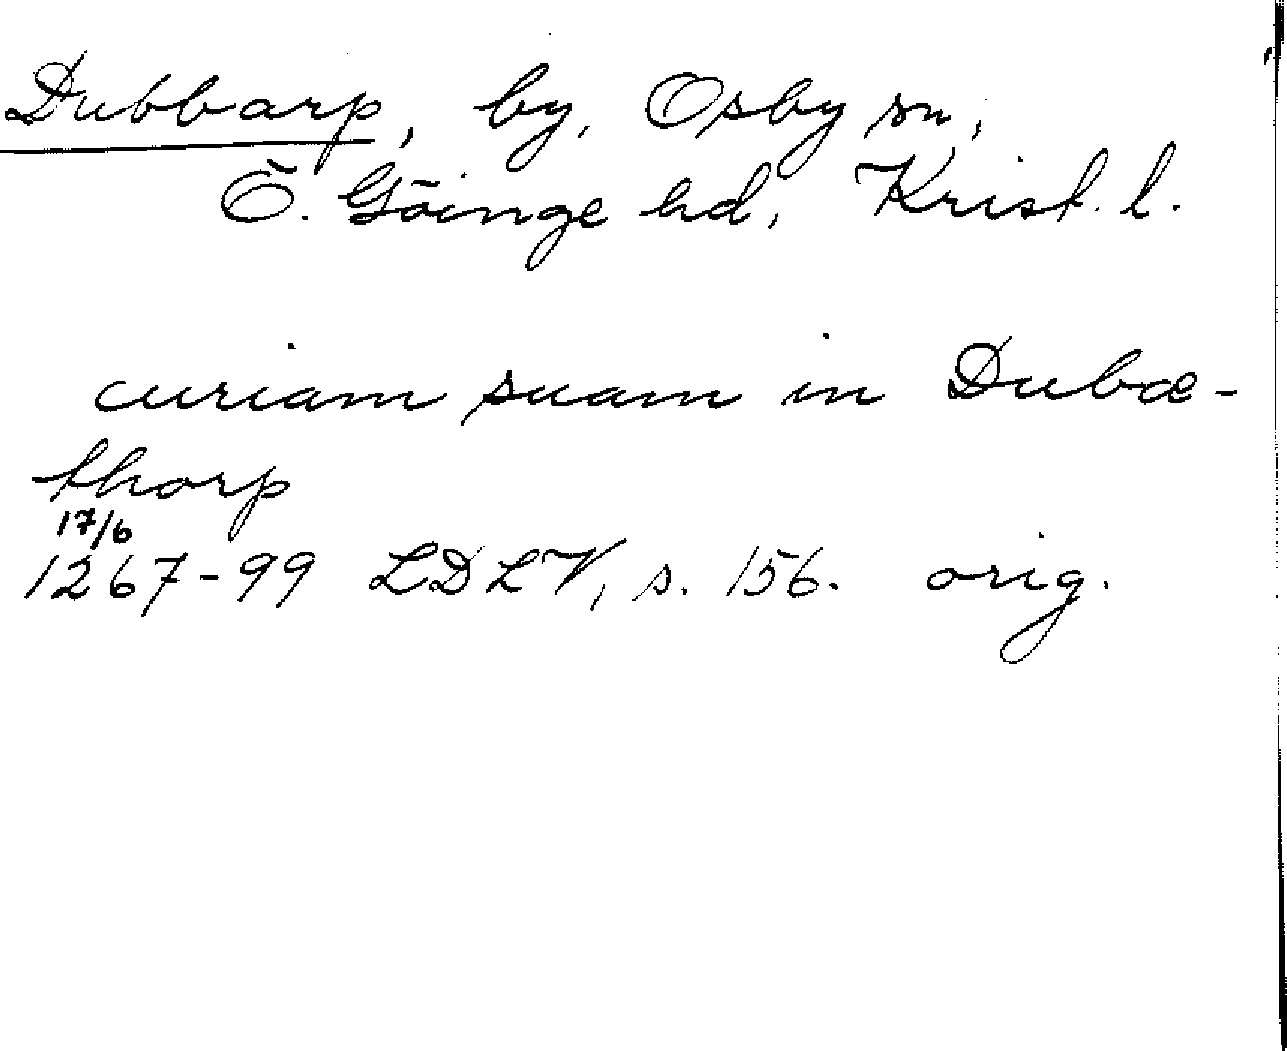 Dubbarp, by, Osby sn,
Ö. Göinge hd, Krist. l.
curiam suam in Dubæ-
thorp
17/6
1267-99 LDLV, s. 156. orig.